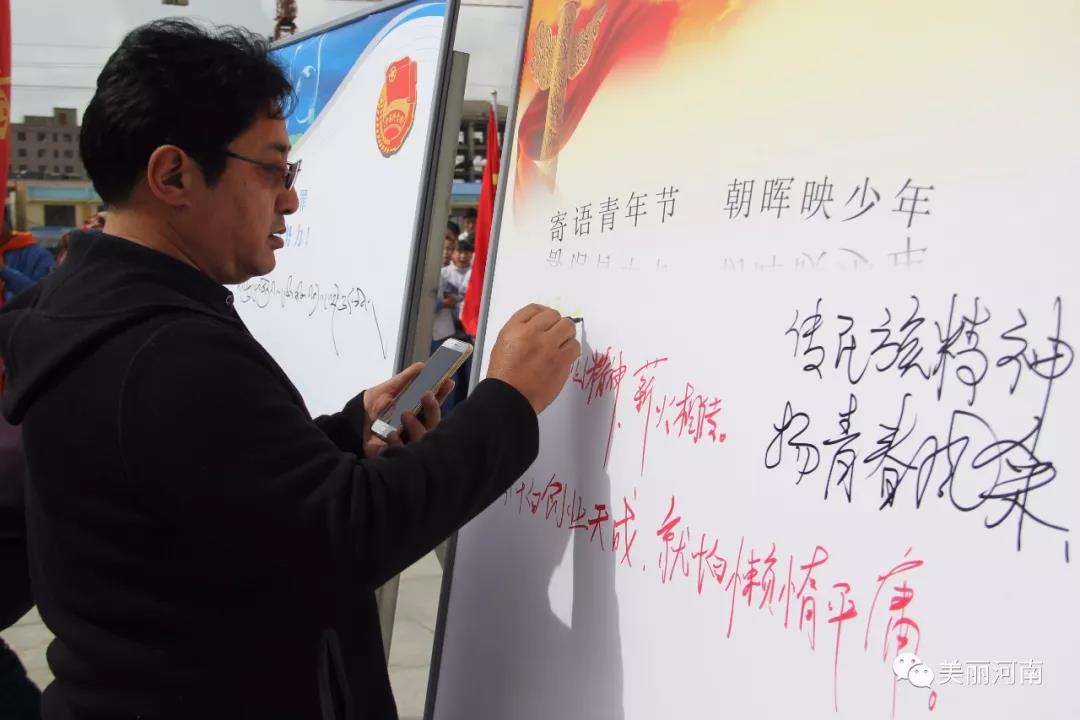 寄语青年节 朝晖映少年
传民族精神
扬青春风采
精神、薪火相传。
怕创业天成，就怕懒惰平庸。
力！
美丽河南